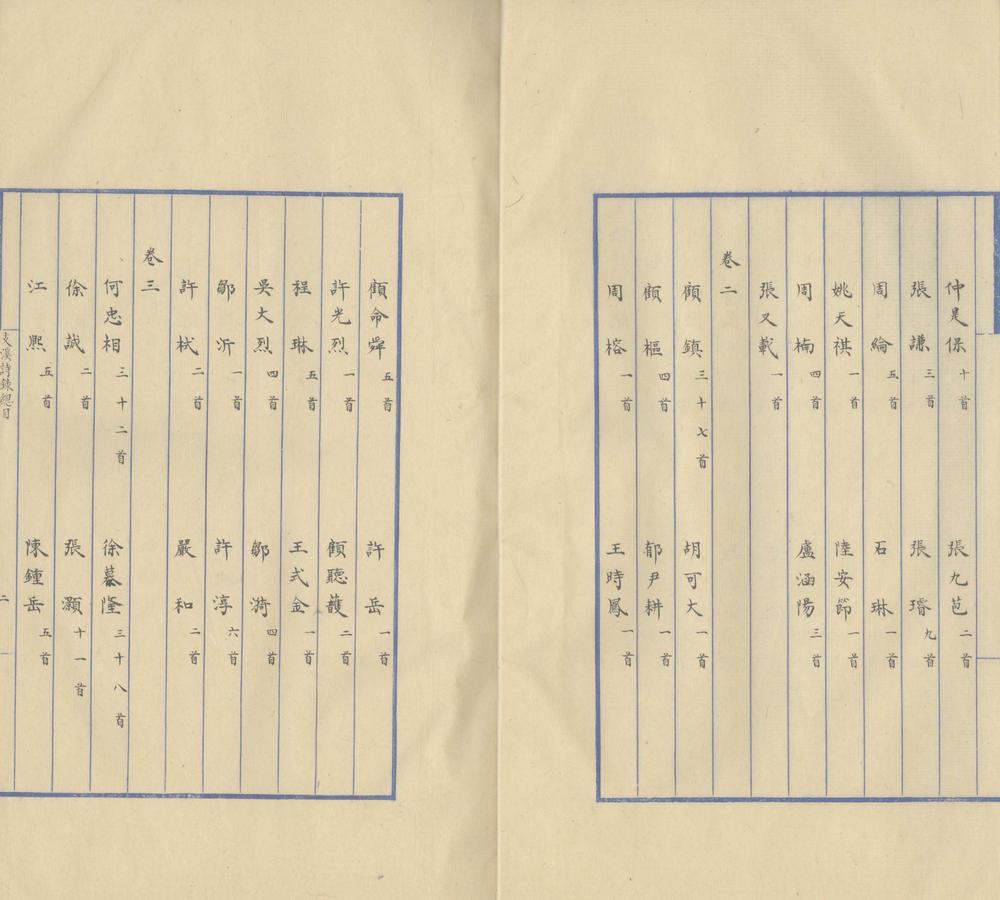 仲是保十首 張九苞二首
張謙三首 張璿九首
周綸五首 石琳一首
姚天祺一首 陸安節一首
周楠四首 盧涵陽三首
張又載一首
卷二
顧鎮三十七首 胡可大一首
顧樞四首 郁尹耕一首
周榕一首 王時鳳一首
顧命舜五首 許岳一首
許光烈一首 顧聽頀二首
程琳五首 王式金一首
吳大烈四首 鄒漪四首
鄒沂一首 許淳六首
許栻二首 嚴和二首
卷三
何忠相三十二首 徐慕隆三十八首
徐誠二首 張灝十一首
江熙五首 陳鍾岳五首
支溪詩錄總目
二